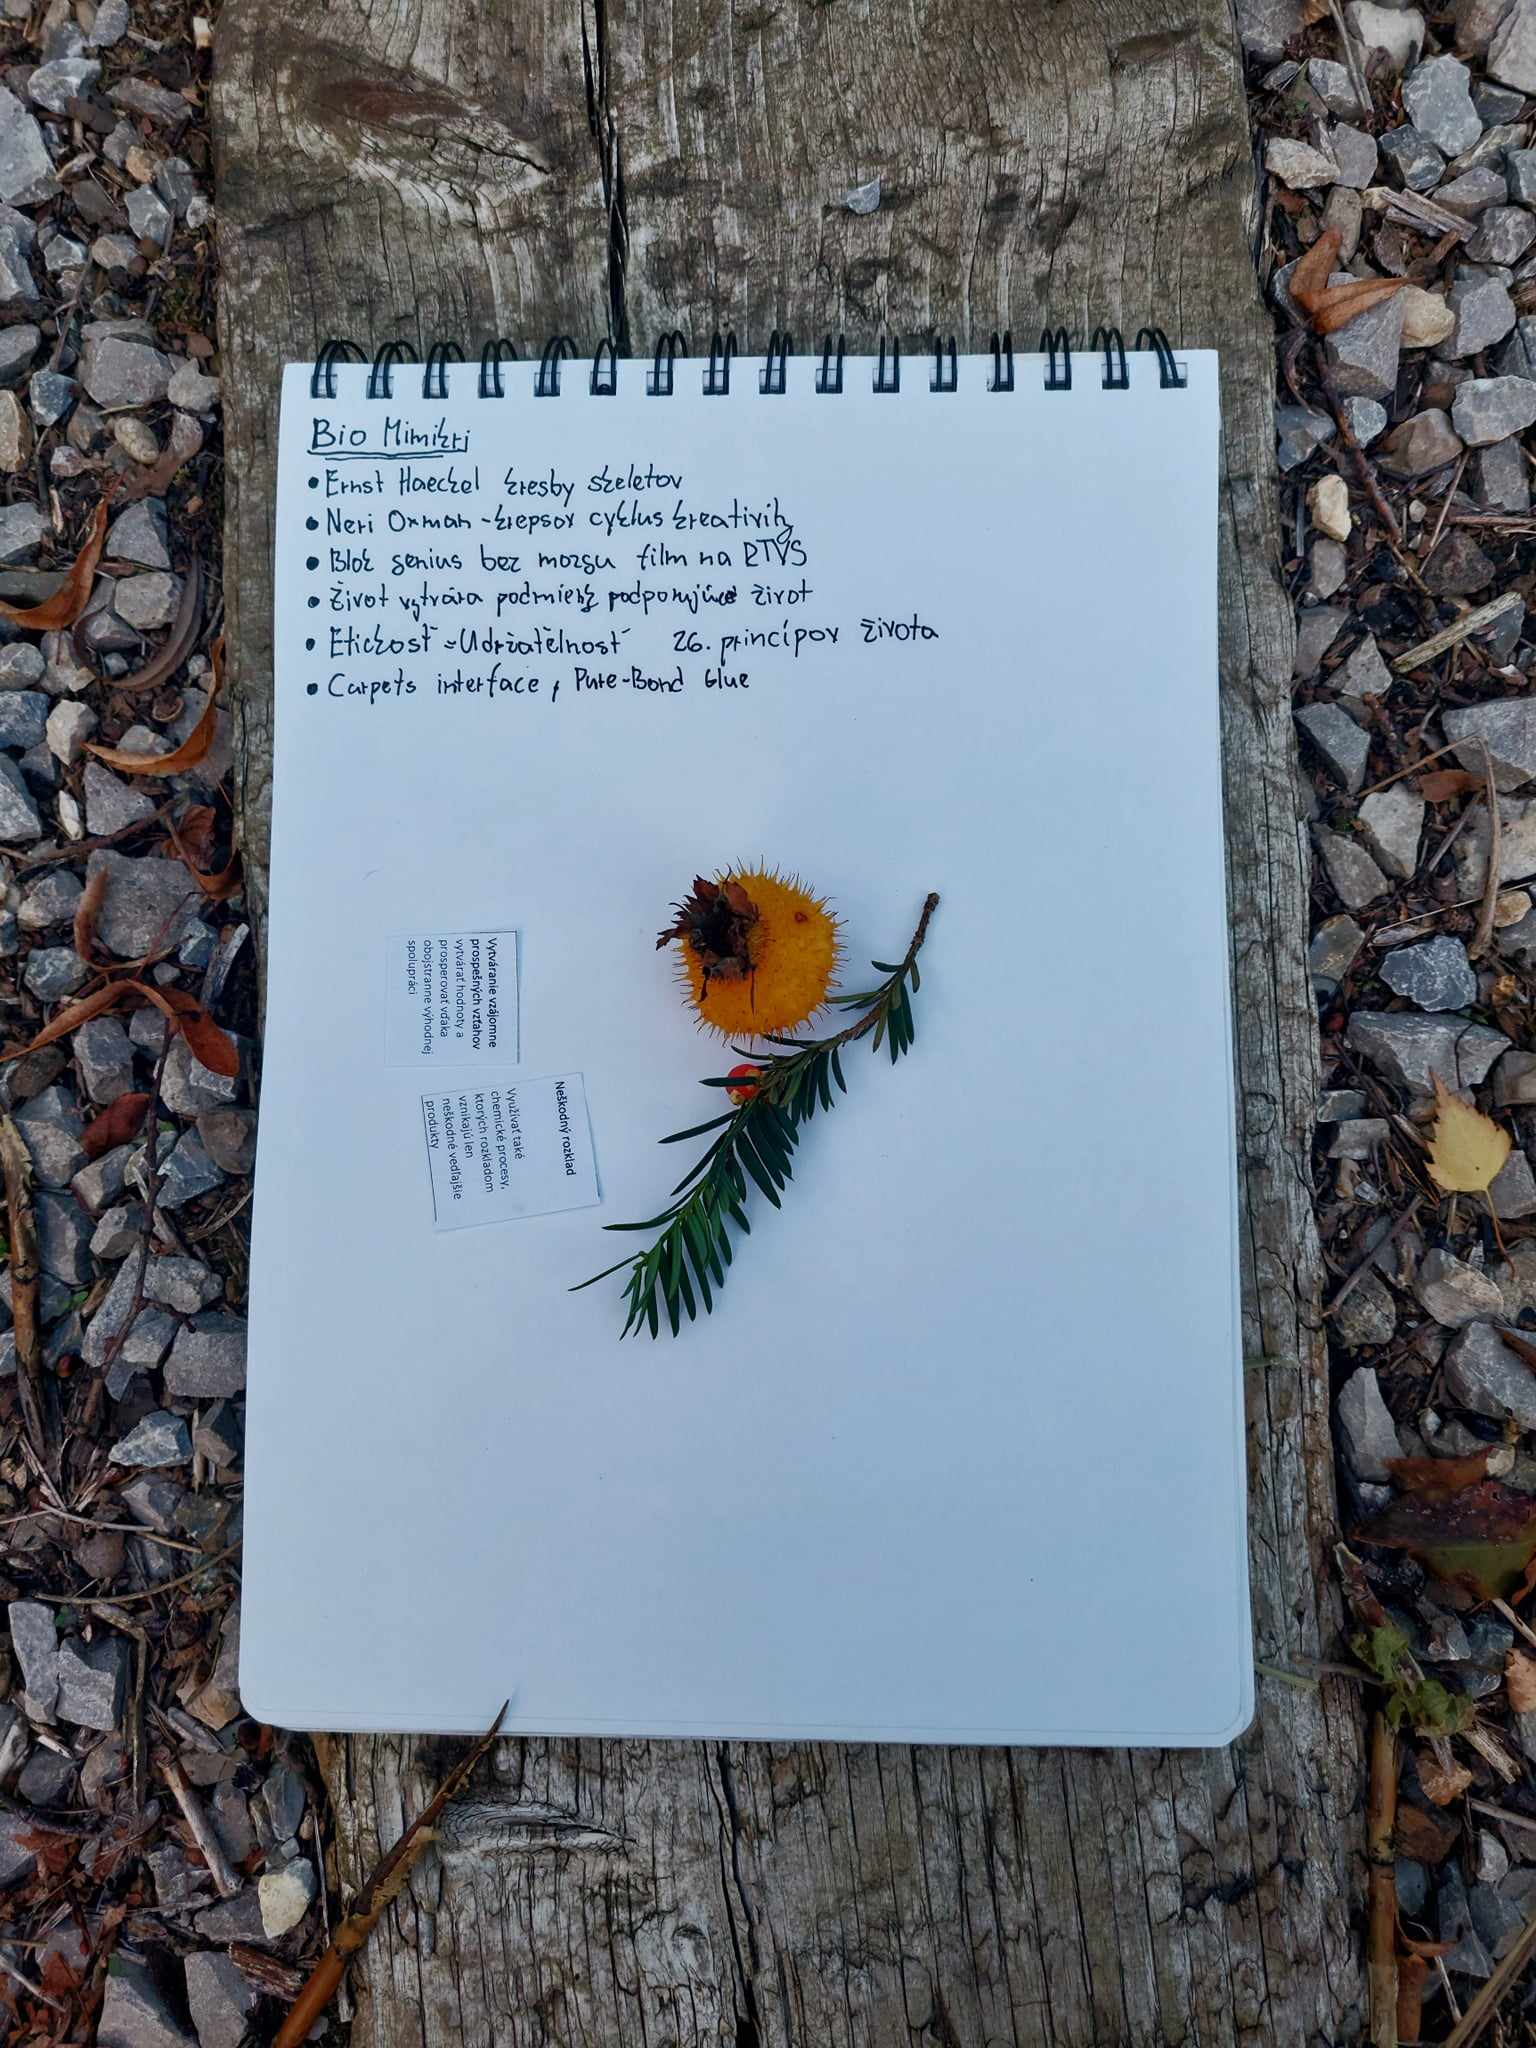 Bio Mimikri
• Ernst Haeckel kresby skeletov
• Neri Oxman - krepsov cyklus kreativity
• Blob genius bez mozgu film na RTVS
• Život vytvára podmienky podporujúce život
• Etickosť = Udržatělnosť 26. princípov života
• Carpets interface, Pure-Bond Glue
Vytváranie vzájomne
prospešných vzťahov
vytvárať hodnoty a
prosperovať vďaka
obojstranne výhodnej
spolupráci
Neškodný rozklad
Využívať také
chemické procesy,
ktorých rozkladom
vznikajú len
neškodné vedľajšie
produkty